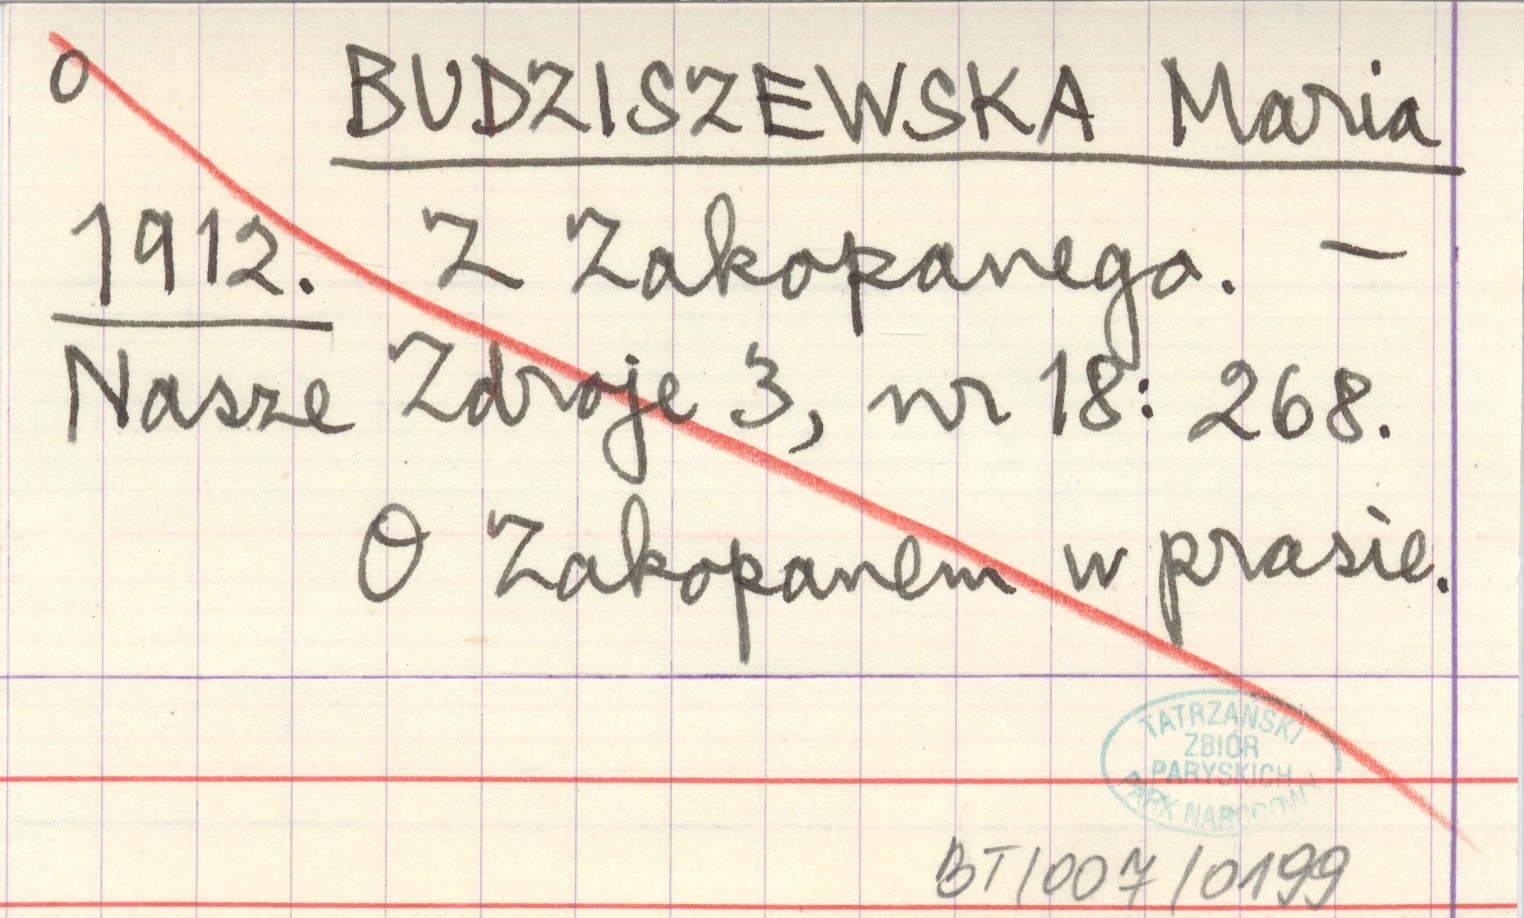 O BUDZISZEWSKA Maria
1912. Z Zakopanego. –
Nasze Zdroje 3, nr 18: 268.
O Zakopanem w prasie.
TATRZAŃSKI
ZBIÓR
PARYSKICH
PARK NARODOWY
BT/007/0199